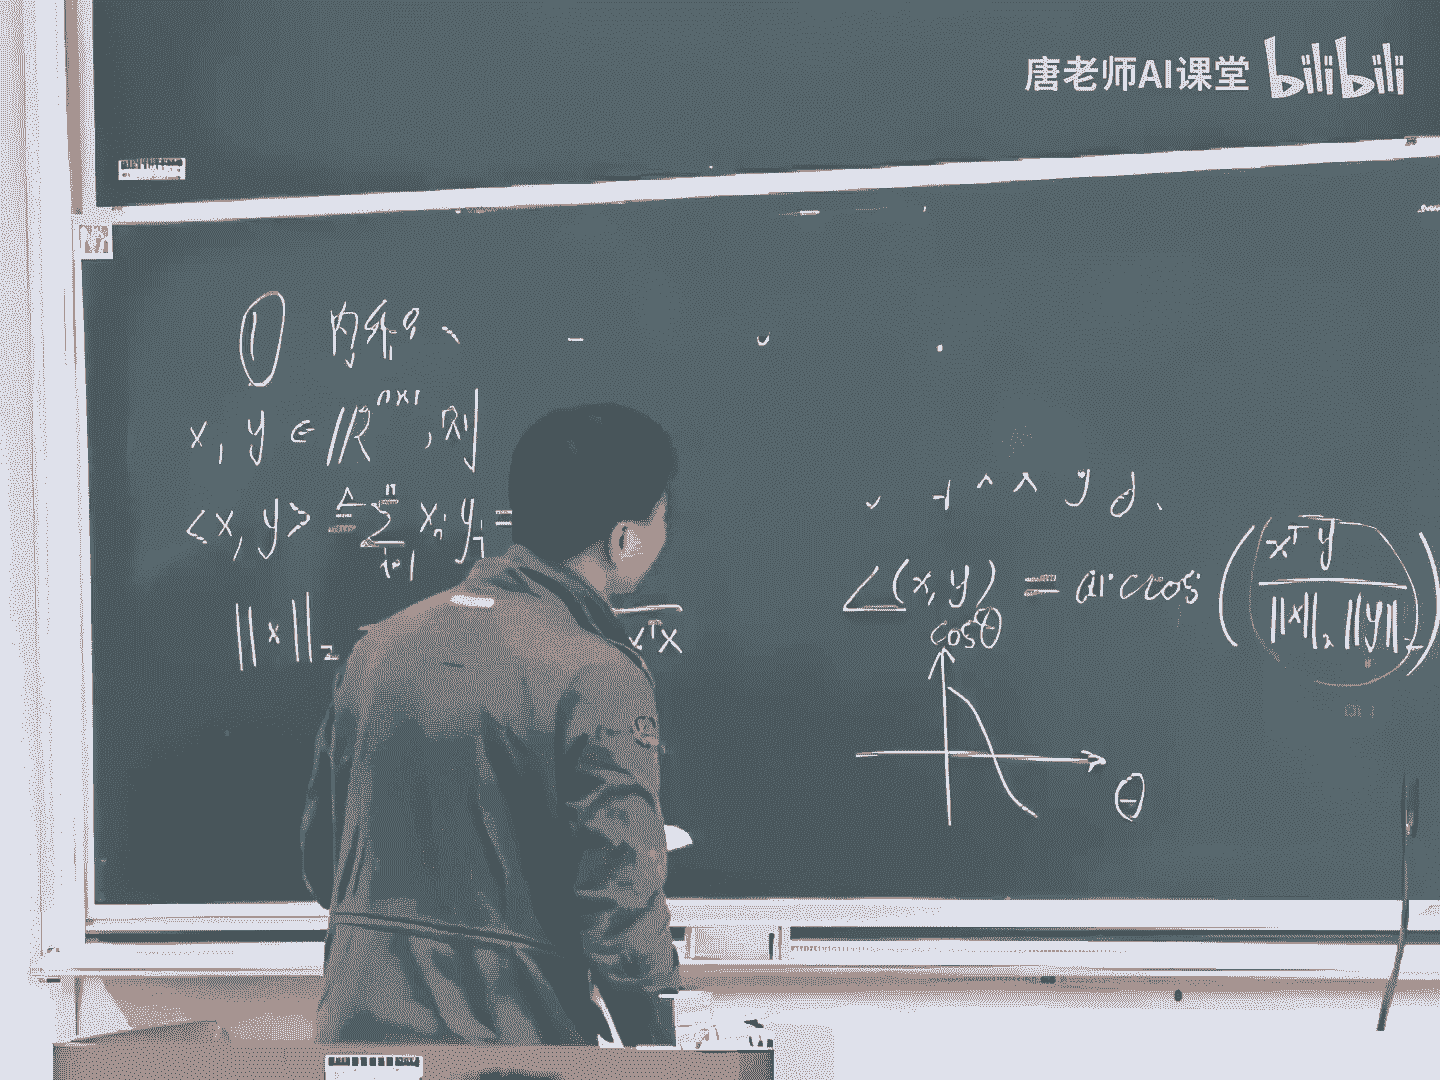 唐老师AI课堂 bilibili
① 内积
x, y ∈ ℝⁿˣ¹, 则
<x, y> ≜ ∑ᵢ₌₁ⁿ xᵢ yᵢ =
||x||₂
xᵀx
∠(x, y) = arccos ( xᵀy / ||x||₂ ||y||₂ )
cosθ
θ